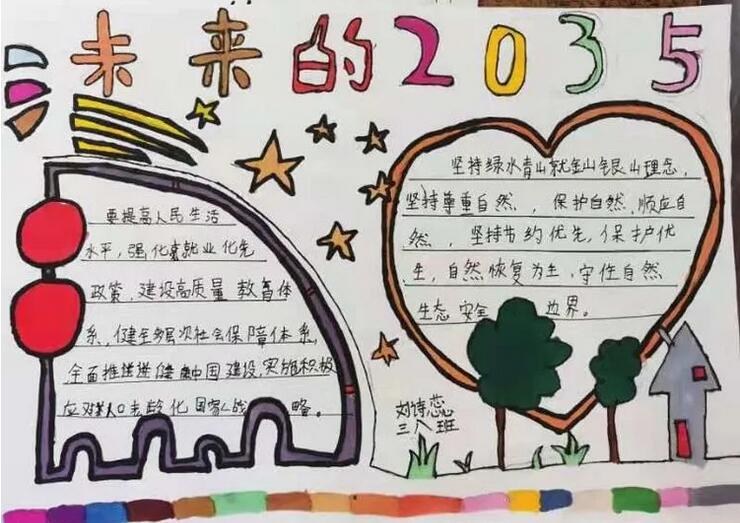 未来的2035
要提高人民生活
水平，强化就业化先
政策，建设高质量教育体
系，健全多层次社会保障体系，
全面推进健康中国建设，实施积极
应对人口老龄化国家战略。
坚持绿水青山就金山银山理念，
坚持尊重自然，保护自然，顺应自
然，坚持节约优先，保护优
生，自然恢复为主，守住自然
生态安全边界。
刘诗蕊
三八班